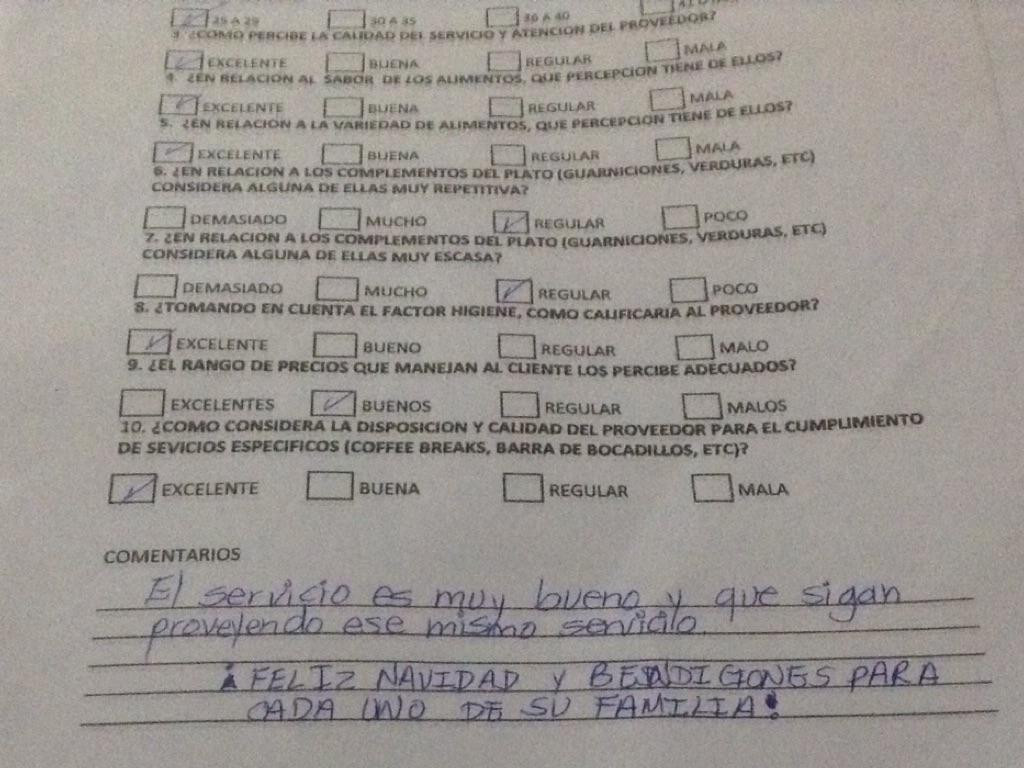 25 A 29 30 A 35 36 A 40
3 ¿COMO PERCIBE LA CALIDAD DEL SERVICIO Y ATENCION DEL PROVEEDOR?
EXCELENTE BUENA REGULAR MALA
4. ¿EN RELACION AL SABOR DE LOS ALIMENTOS, QUE PERCEPCION TIENE DE ELLOS?
EXCELENTE BUENA REGULAR MALA
5. ¿EN RELACION A LA VARIEDAD DE ALIMENTOS, QUE PERCEPCION TIENE DE ELLOS?
EXCELENTE BUENA REGULAR MALA
6. ¿EN RELACION A LOS COMPLEMENTOS DEL PLATO (GUARNICIONES, VERDURAS, ETC)
CONSIDERA ALGUNA DE ELLAS MUY REPETITIVA?
DEMASIADO MUCHO REGULAR POCO
7. ¿EN RELACION A LOS COMPLEMENTOS DEL PLATO (GUARNICIONES, VERDURAS, ETC)
CONSIDERA ALGUNA DE ELLAS MUY ESCASA?
DEMASIADO MUCHO REGULAR POCO
8. ¿TOMANDO EN CUENTA EL FACTOR HIGIENE, COMO CALIFICARIA AL PROVEEDOR?
EXCELENTE BUENO REGULAR MALO
9. ¿EL RANGO DE PRECIOS QUE MANEJAN AL CLIENTE LOS PERCIBE ADECUADOS?
EXCELENTES BUENOS REGULAR MALOS
10. ¿COMO CONSIDERA LA DISPOSICION Y CALIDAD DEL PROVEEDOR PARA EL CUMPLIMIENTO
DE SEVICIOS ESPECIFICOS (COFFEE BREAKS, BARRA DE BOCADILLOS, ETC)?
EXCELENTE BUENA REGULAR MALA
COMENTARIOS
El servicio es muy bueno y que sigan
proveyendo ese mismo servicio.
¡FELIZ NAVIDAD Y BENDICIONES PARA
CADA UNO DE SU FAMILIA!